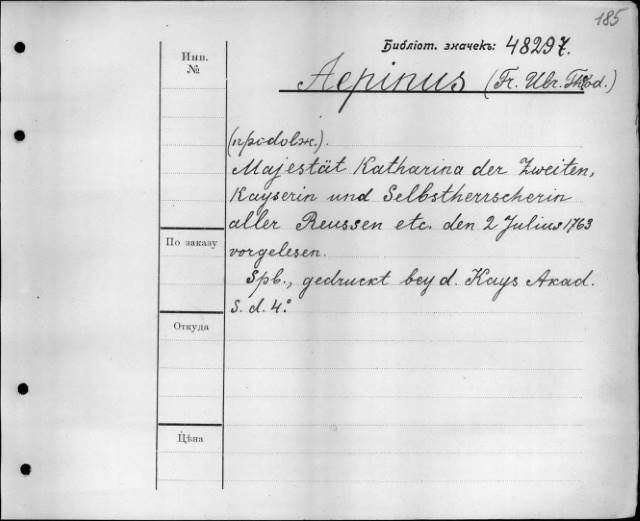 185
Библіот. значекъ: 48297.
Инв.
№
Aepinus (Fr. Ulr. Theod.)
(продолж.).
Majestät Katharina der Zweiten,
Kayserin und Selbstherrscherin
aller Reussen etc. den 2 Julius 1763
По заказу
vorgelesen.
Spb., gedruckt bey d. Kays Akad.
S. d. 4.°
Откуда
Цѣна